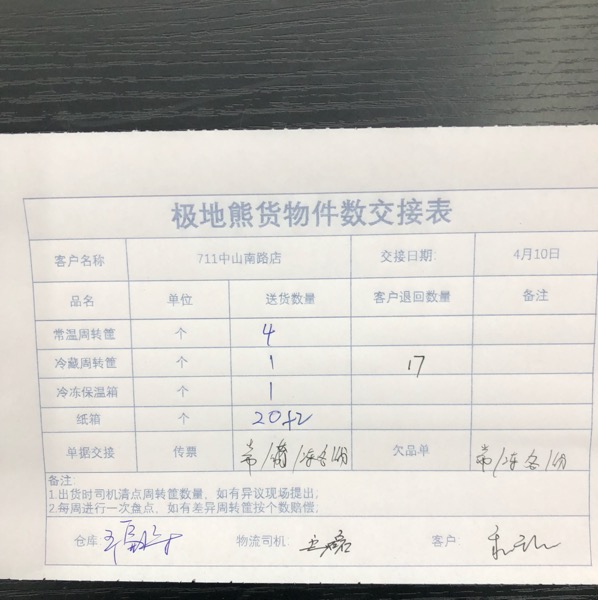 极地熊货物件数交接表
客户名称 711中山南路店 交接日期: 4月10日
品名 单位 送货数量 客户退回数量 备注
常温周转筐 个 4
冷藏周转筐 个 1 17
冷冻保温箱 个 1
纸箱 个 20+2
单据交接 传票 欠品单
备注:
1.出货时司机清点周转筐数量，如有异议现场提出。
2.每周进行一次盘点，如有差异周转筐按个数赔偿。
仓库: 物流司机: 客户: